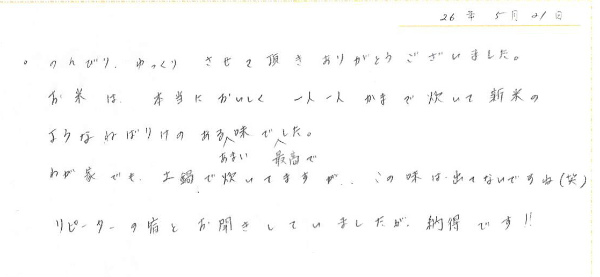 26年 5月21日
。のんびり、ゆっくり させて頂き ありがとうございました。
お米は、本当に おいしく 一人一人 かまで 炊いて 新米の
ような ねばりけの ある 味でした。
あまい 最高で
わが家でも、土鍋で炊いてますが、、この味は出てないですね(笑)
リピーターの宿とお聞きしていましたが、納得です!!